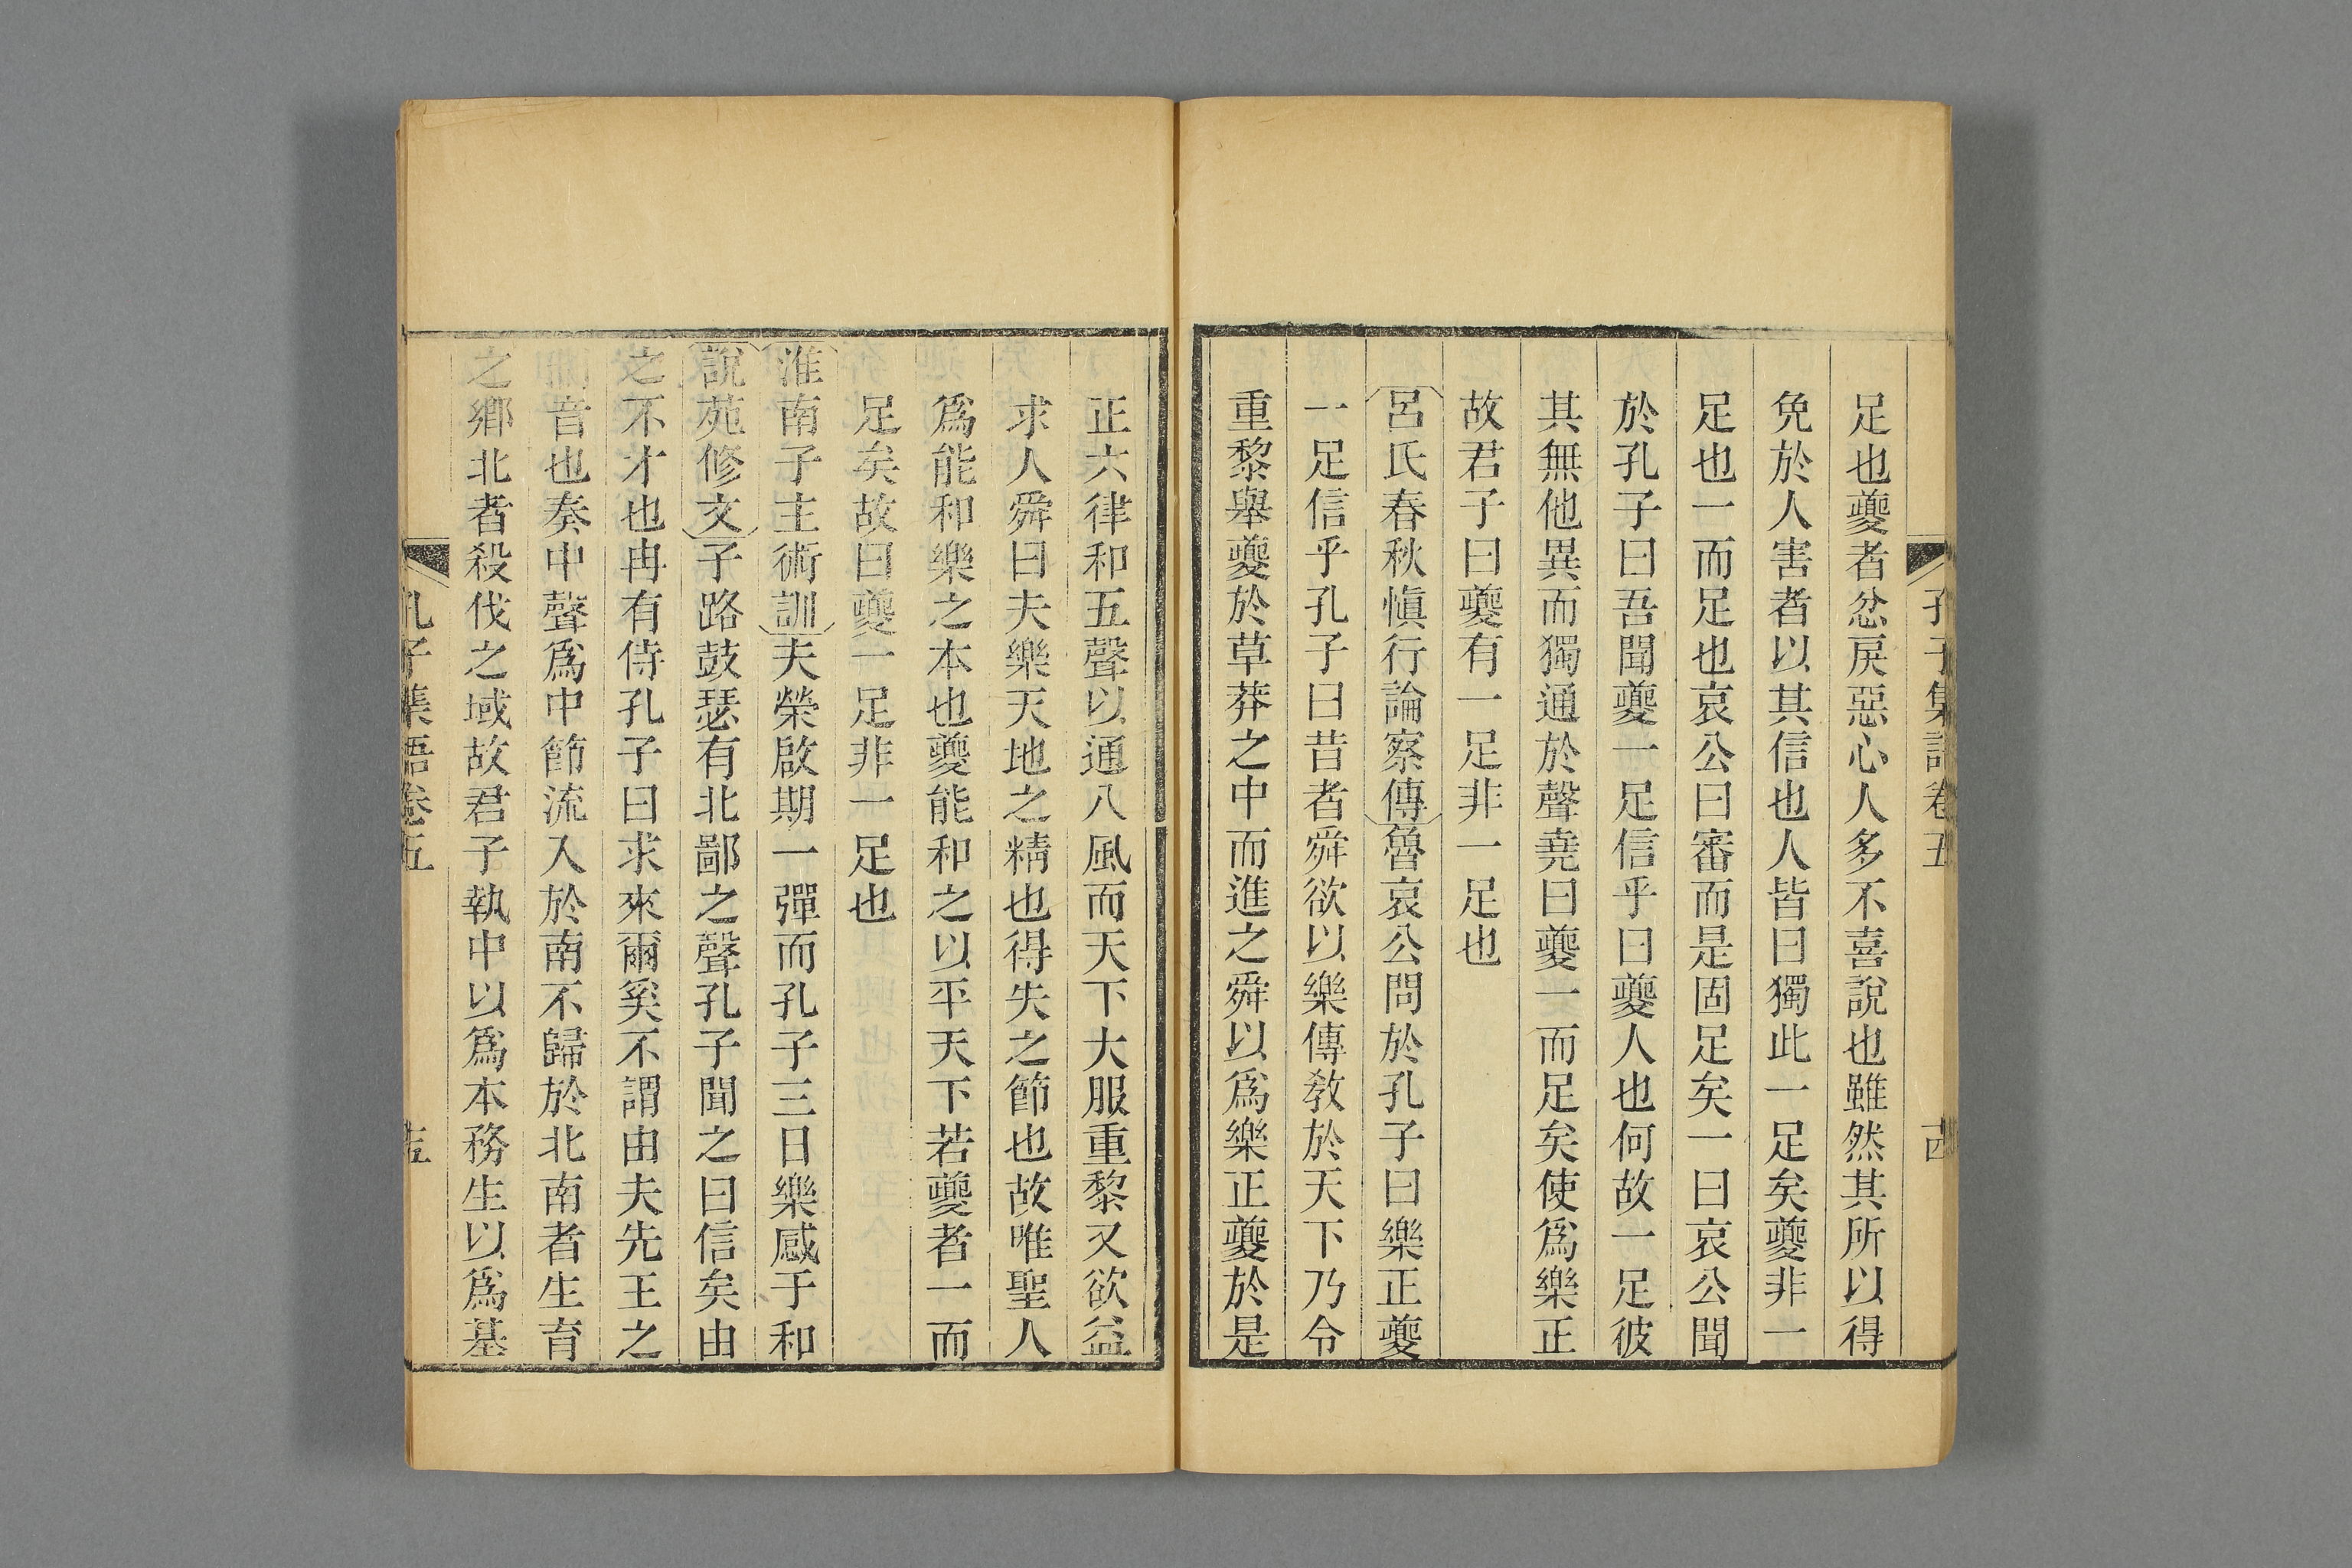 孔子集語卷五
足也夔者忿戾惡心人多不喜說也雖然其所以得
免於人害者以其信也人皆曰獨此一足矣夔非一
足也一而足也哀公曰審而是固足矣一曰哀公聞
於孔子曰吾聞夔一足信乎曰夔人也何故一足彼
其無他異而獨通於聲堯曰夔一而足矣使爲樂正
故君子曰夔有一足非一足也
呂氏春秋愼行論察傳魯哀公問於孔子曰樂正夔
一足信乎孔子曰昔者舜欲以樂傳敎於天下乃令
重黎舉夔於草莽之中而進之舜以爲樂正夔於是
正六律和五聲以通八風而天下大服重黎又欲益
求人舜曰夫樂天地之精也得失之節也故唯聖人
爲能和樂之本也夔能和之以平天下若夔者一而
足矣故曰夔一足非一足也
淮南子主術訓夫榮啟期一彈而孔子三日樂感于和
說苑修文子路鼓瑟有北鄙之聲孔子聞之曰信矣由
之不才也冉有侍孔子曰求來爾奚不謂由夫先王之
音也奏中聲爲中節流入於南不歸於北南者生育
之鄉北者殺伐之域故君子執中以爲本務生以爲基
孔子集語卷五